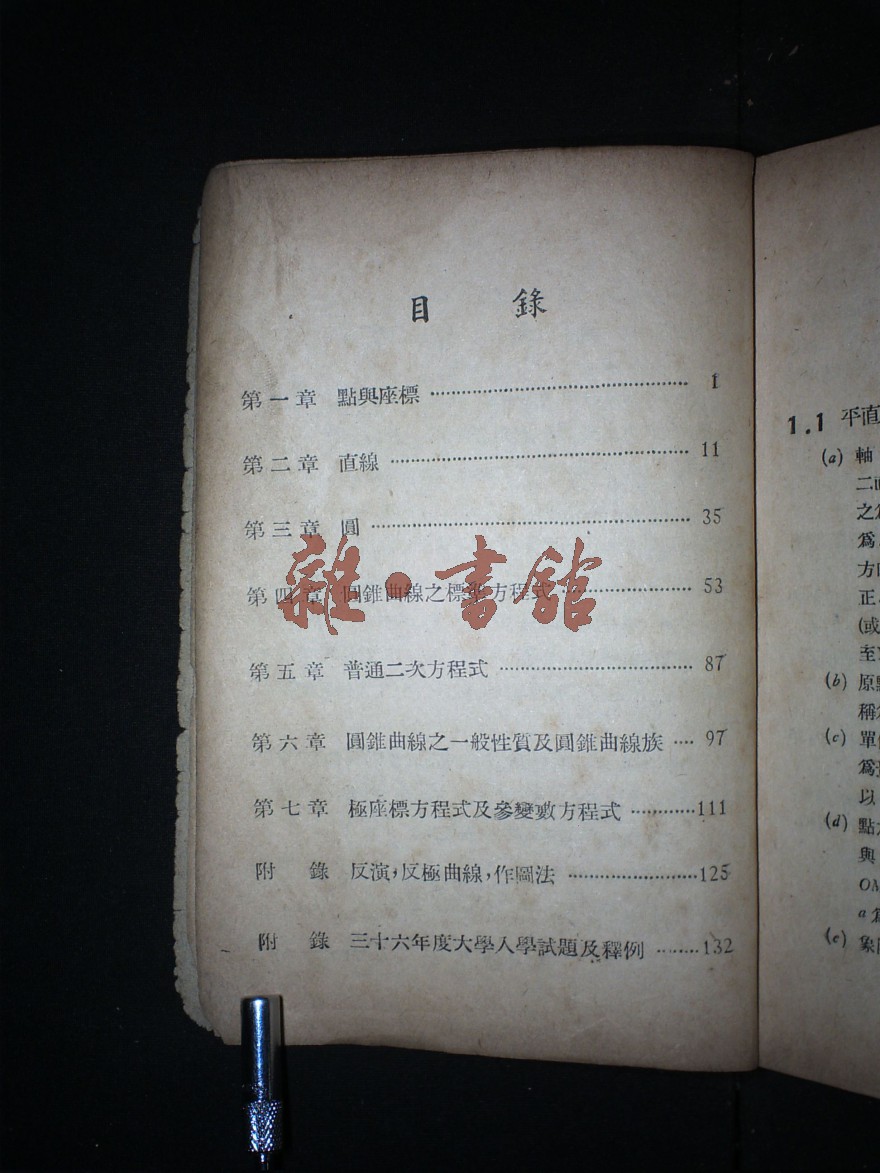 目 錄
第一章 點與座標 ……………………………… 1
第二章 直線 ……………………………… 11
第三章 圓 ……………………………… 35
第四章 圓錐曲線之標準方程式 ……………… 53
第五章 普通二次方程式 ……………………… 87
第六章 圓錐曲線之一般性質及圓錐曲線族 …… 97
第七章 極座標方程式及參變數方程式 …………111
附 錄 反演,反極曲線,作圖法 ………………125
附 錄 三十六年度大學入學試題及釋例 ………132
雜·書舘
1.1 平直
(a) 軸
二
之
爲
方
正
(或
至
(b) 原點
稱
(c) 單
爲
以
(d) 點
與
OM
a
(e) 象